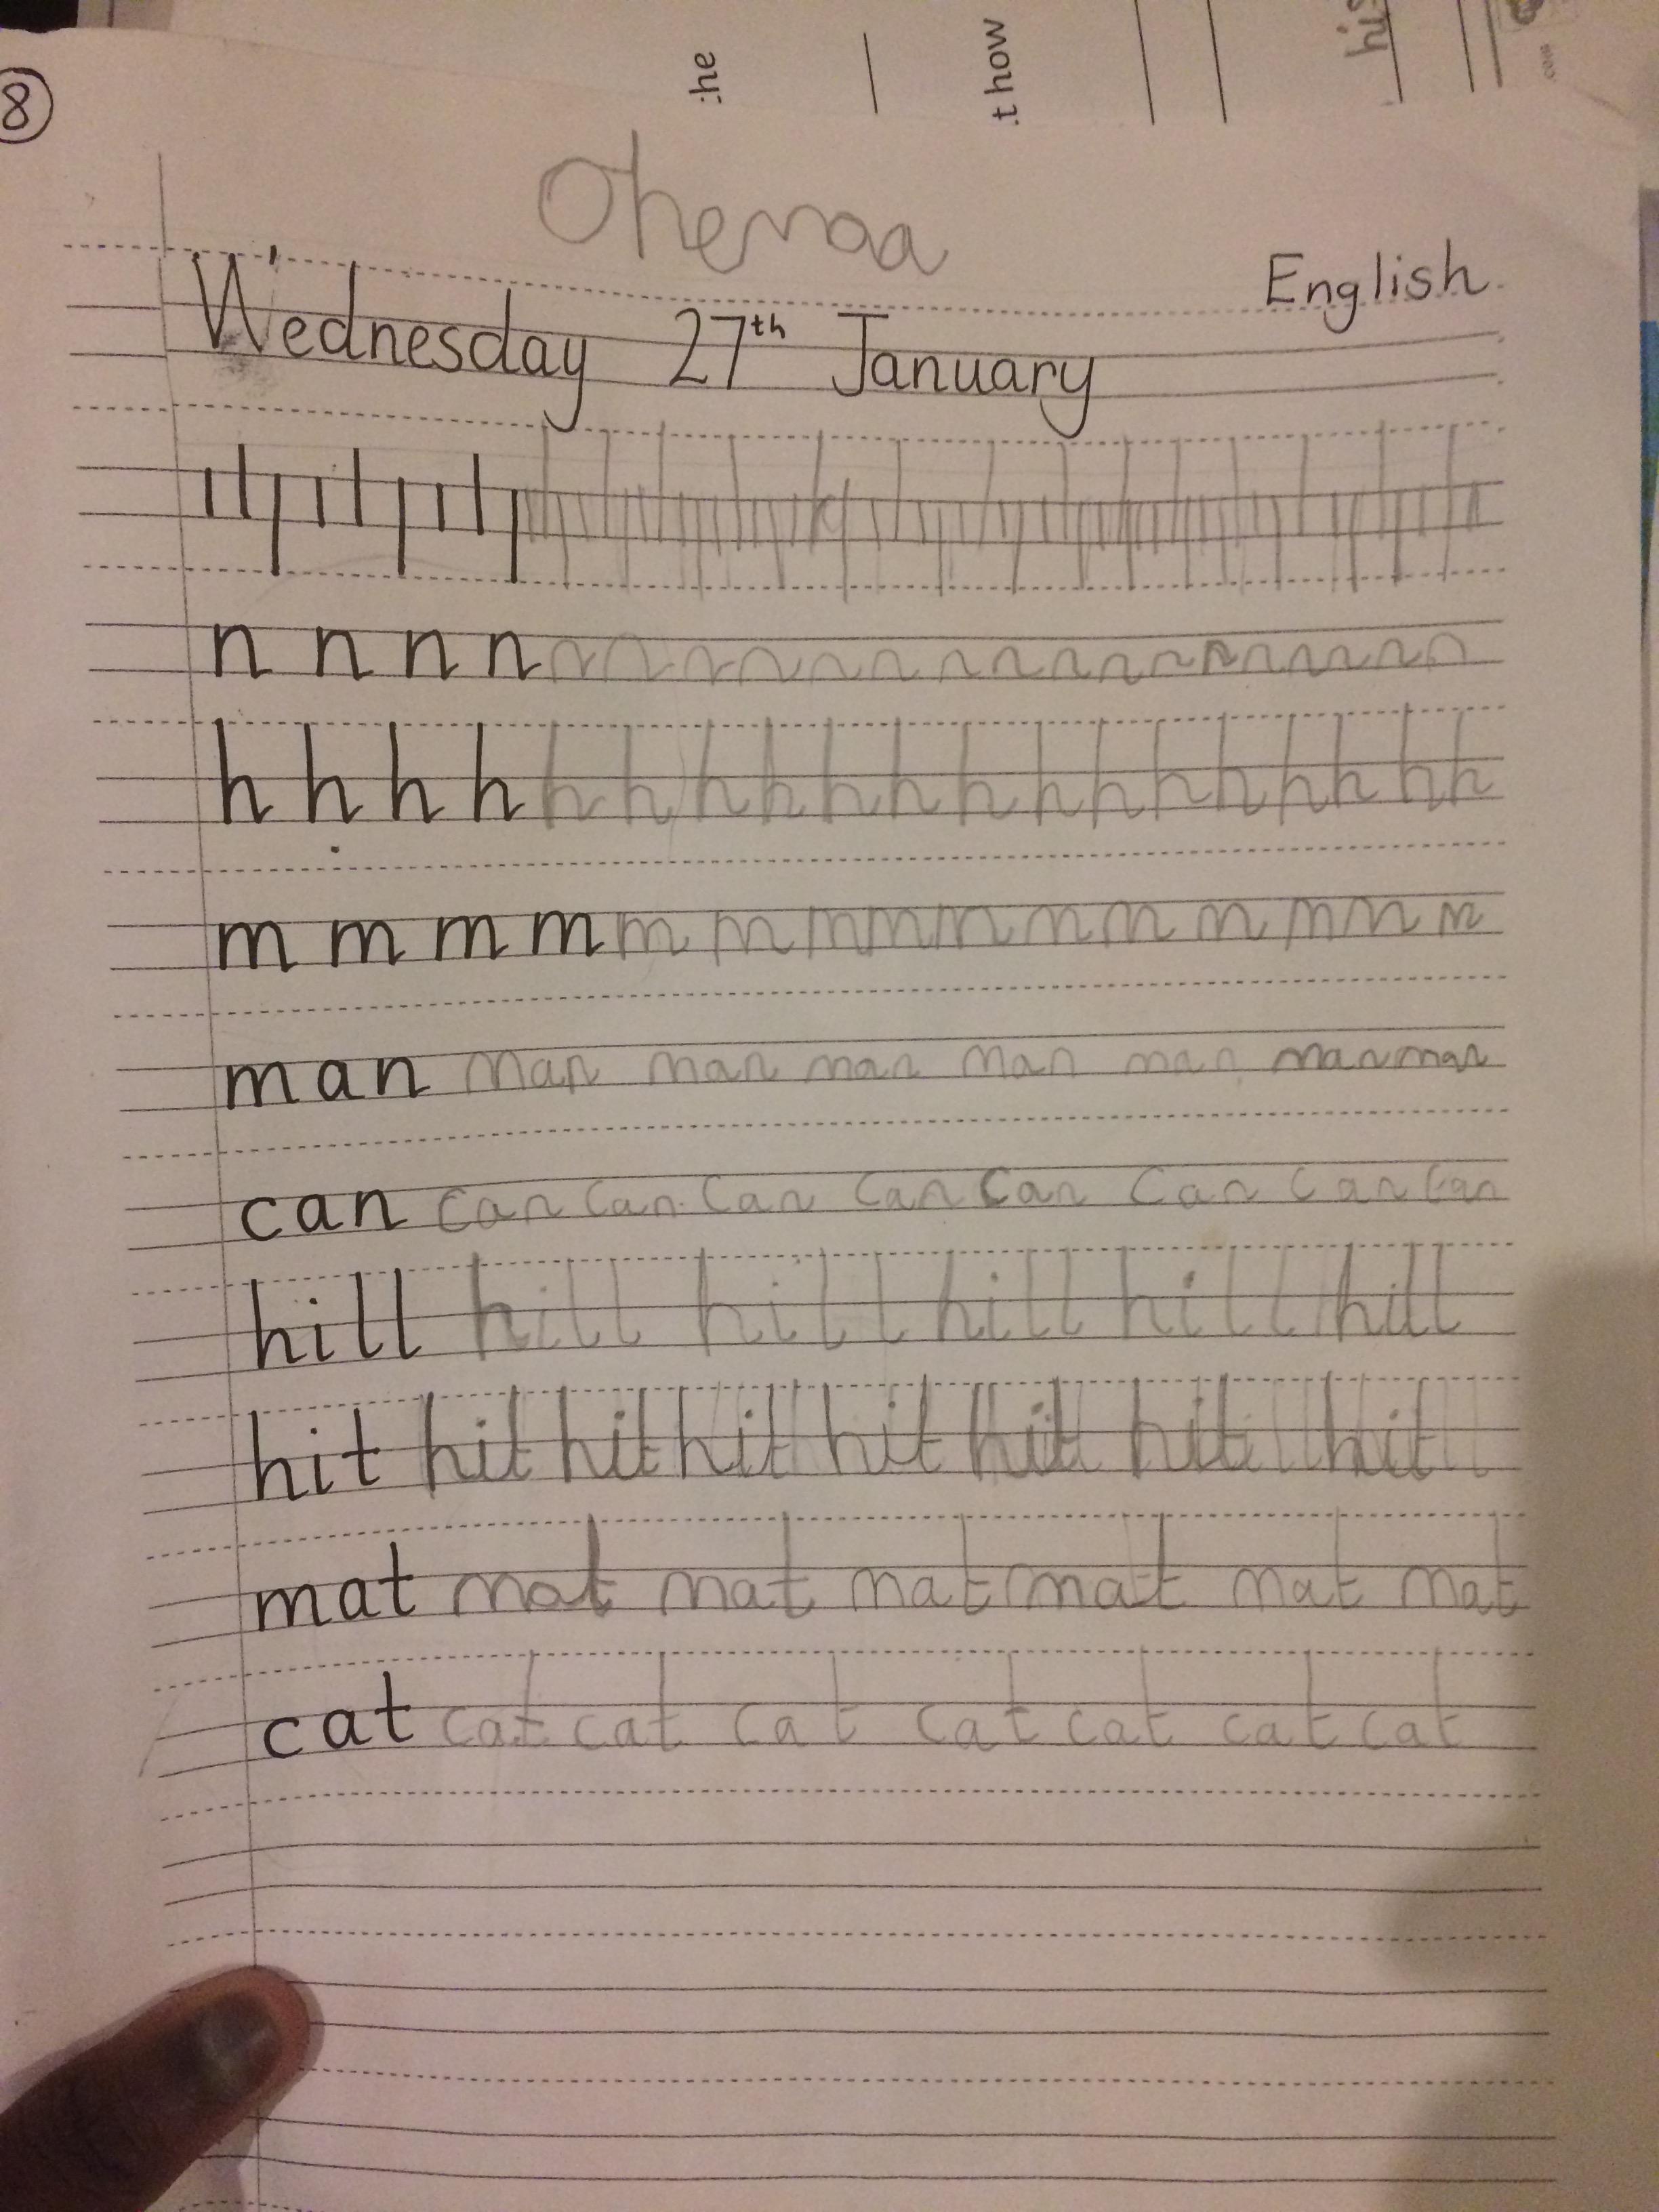 :he
.t how
his
.com
8
Ohemaa
English
Wednesday 27th January
n n n n n n n n n n n n n n n n n n n n
h h h h h h h h h h h h h h h h h h h
m m m m m m m m m m m m m m m
man man man man man man man man
can can can can can can can can can
hill hill hill hill hill hill
hit hit hit hit hit hit hit hit
mat mat mat mat mat mat mat
cat cat cat cat cat cat cat cat